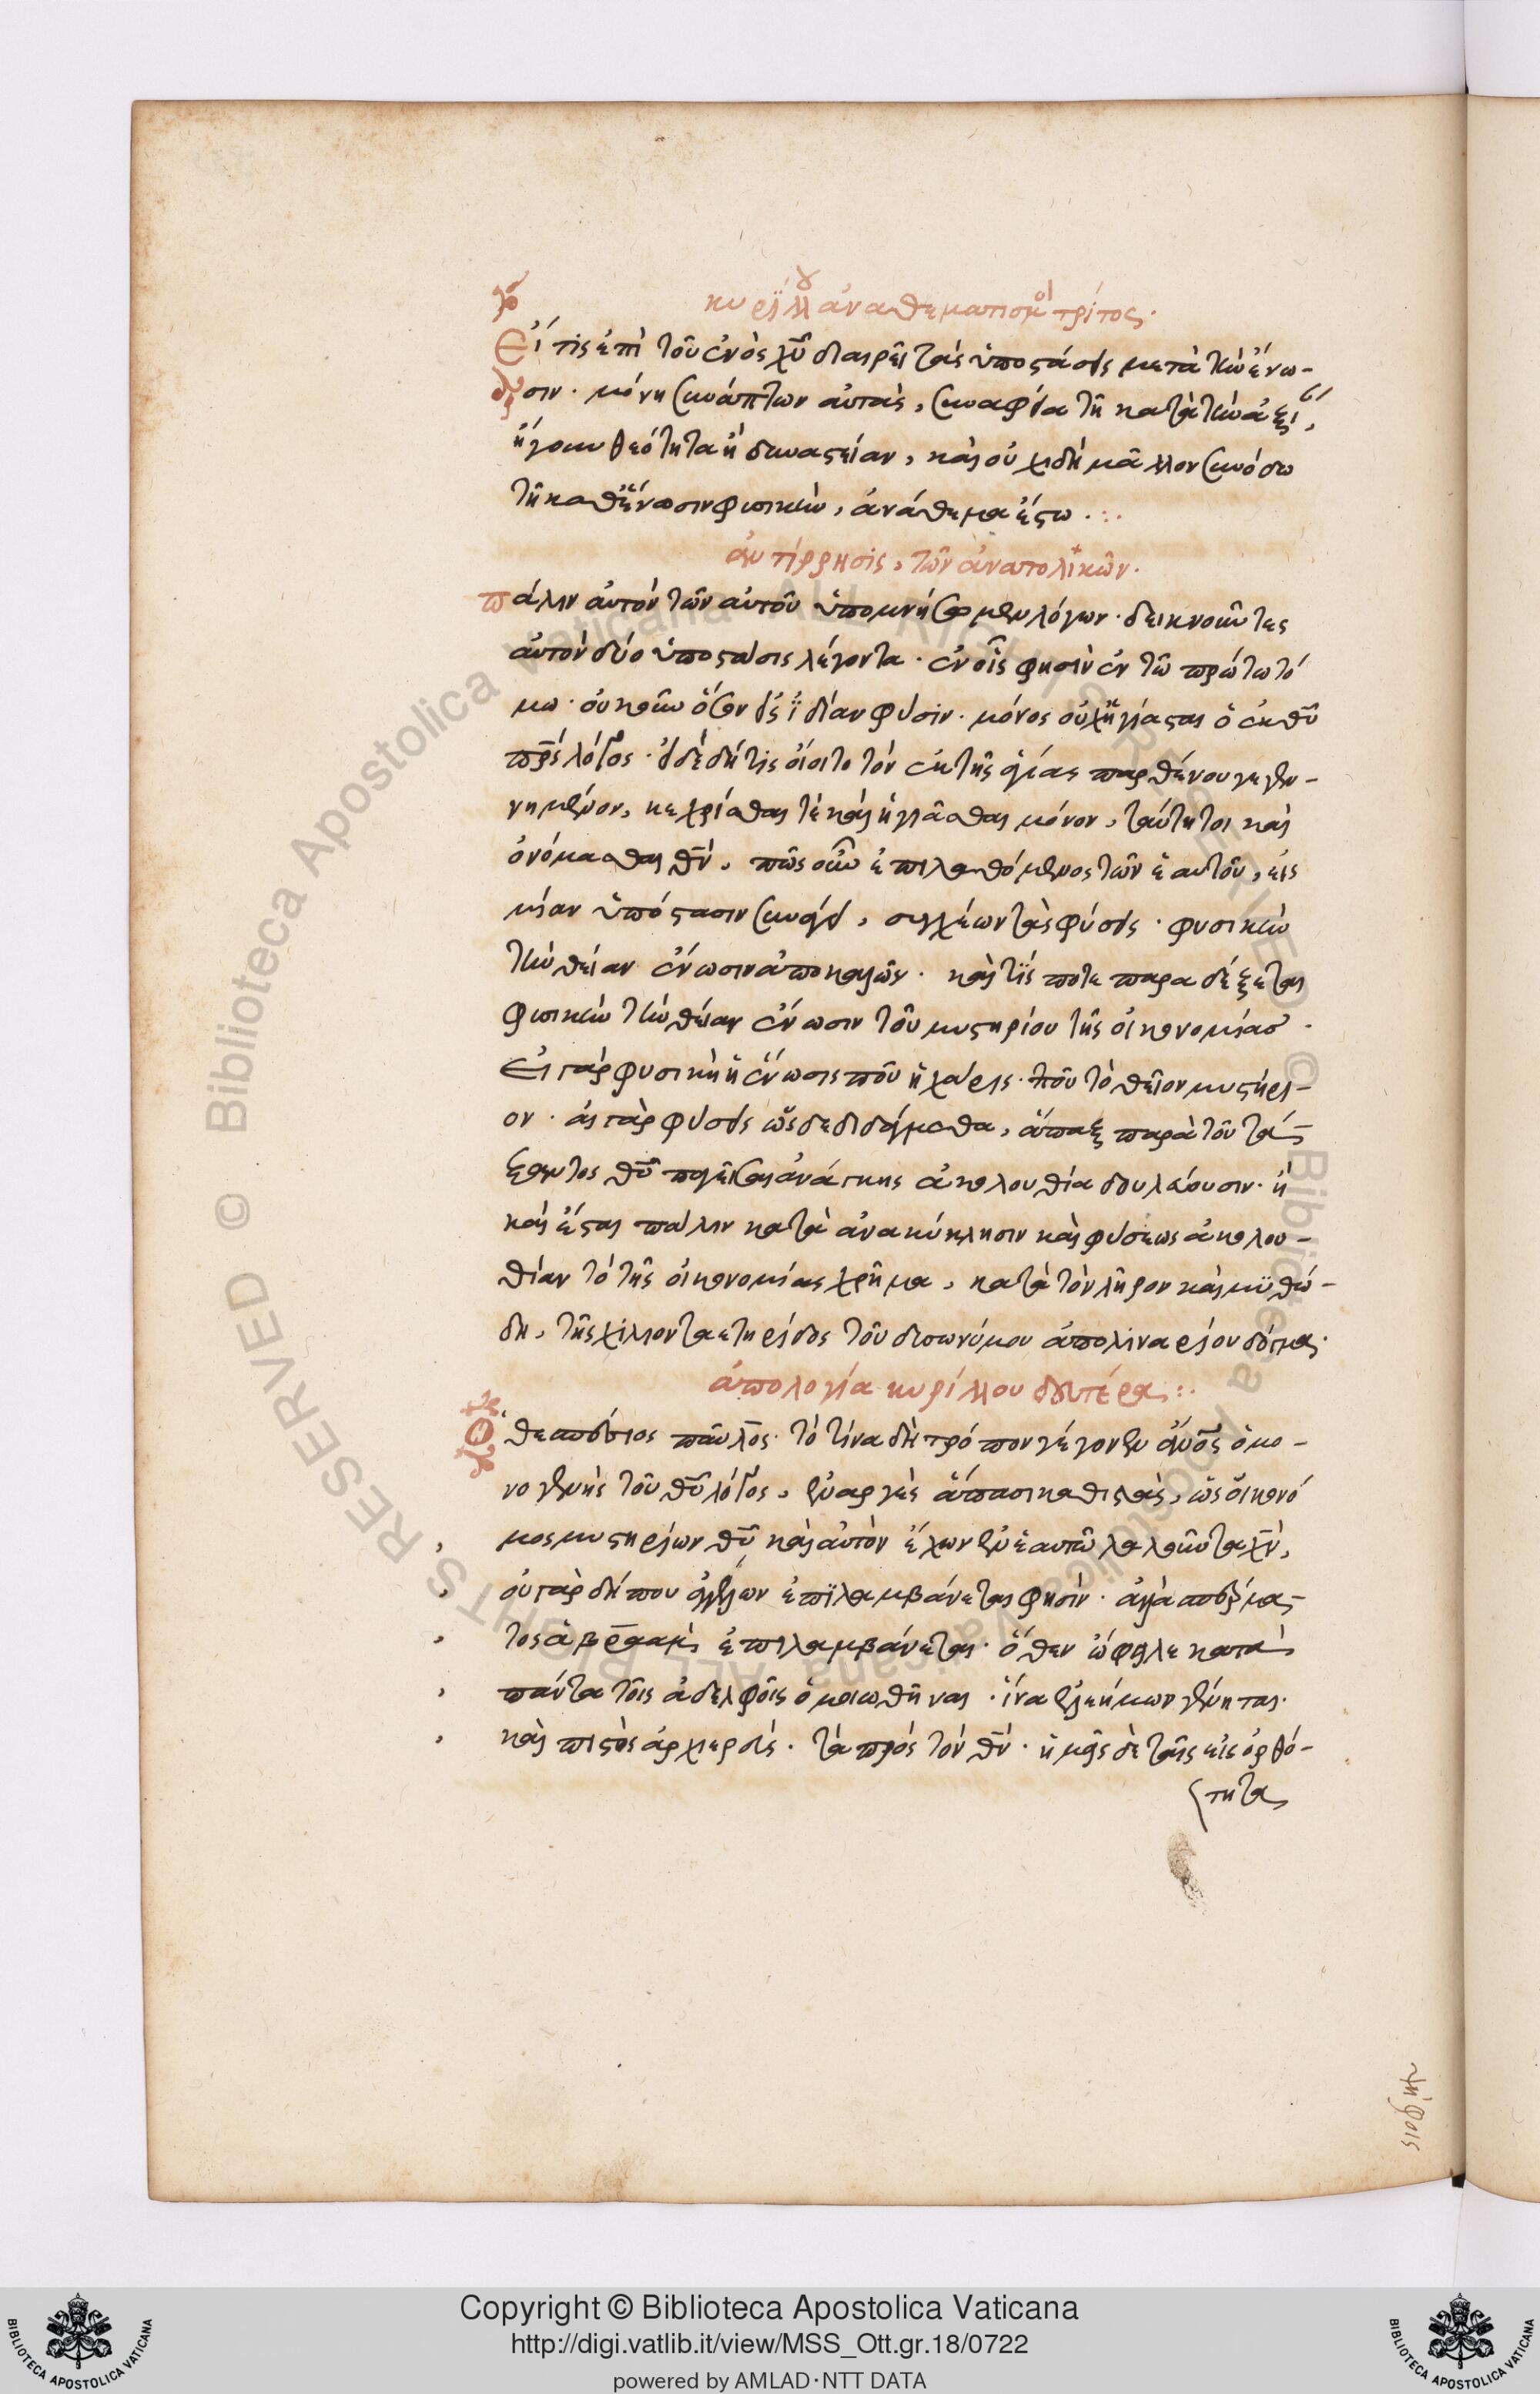 κυρίλλου ἀναθεματισμὸς τρίτος.
Εἴ τις ἐπὶ τοῦ ἑνὸς χῦ διαιρεῖ τὰς ὑποστάσεις μετὰ τὴν ἕνω-
σιν. μόνῃ συνάπτων αὐτὰς, συναφεία τῇ κατὰ τὴν ἀξίαν,
ἤγουν θεότητα ἢ δυναστείαν, καὶ οὐχὶ δὴ μᾶλλον συνόδω
τῇ καθ' ἕνωσιν φυσικὴν, ἀνάθεμα ἔστω.
ἀντίρρησις, τῶν ἀνατολικῶν.
πάλιν αὐτὸν τῶν αὐτοῦ ὑπομνήσωμεν λόγων. δεικνοῦντες
αὐτὸν δύο ὑποστάσις λέγοντα. ἐν οἷς φησὶν ἐν τῶ πρώτω τό
μω. οὐκοῦν ὅσον εἰς ἰδίαν φύσιν. μόνος οὐχ ἡγίασται ὁ ἐκ θῦ
πρς λόγος. εἰ δὲ δή τις οἴοιτο τὸν ἐκ τῆς ἁγίας παρθένου γεγεν-
νημένον, κεχρίσθαι τὲ καὶ ἡγιᾶσθαι μόνον, ταύτῃ τοι καὶ
ὀνόμασθαι θν, πῶς οὖν ἐπιλαθόμενος τῶν ἑαυτοῦ, εἰς
μίαν ὑπόστασιν συνάγει, συγχέων τὰς φύσεις. φυσικὴν
τὴν θείαν ἕνωσιν ἀποκαλῶν. καὶ τίς ποτε παραδέξεται
φυσικὴν τὴν θείαν ἕνωσιν τοῦ μυστηρίου τῆς οἰκονομίας.
Εἰ γὰρ φυσικὴ ἡ ἕνωσις ποῦ ἡ χάρις. ποῦ τὸ θεῖον μυστήρι-
ον. αἱ γὰρ φύσεις ὡς δεδιδάγμεθα, ἅπαξ παρὰ τοῦ τά-
ξαντος θῦ ποιεῖσαι ἀνάγκης ἀκολουθία δουλεύουσιν. ἢ
καὶ ἔσται πάλιν κατὰ ἀνακύκλησιν καὶ φύσεως ἀκολου-
θίαν τὸ τῆς οἰκονομίας χρῆμα, κατὰ τὸν λῆρον καὶ μυθώ-
δη, τῆς χιλιονταετηρίδος τοῦ δισωνύμου ἀπολιναρίου δόγμα.
ἀπολογία κυρίλλου δευτέρα:.
Ὁ θεσπέσιος παῦλος. τὸ τίνα δὴ τρόπον γέγονεν ἄνος ὁ μο-
νογενὴς τοῦ θῦ λόγος, ἐναργὲς ἅπασι καθιστὰς, ὡς οἰκονό
μος μυστηρίων θῦ καὶ αὐτὸν ἔχων ἐν ἑαυτῶ λαλοῦντα χν,
οὐ γὰρ δήπου ἀγγέλων ἐπιλαμβάνεται φησὶν. ἀλλὰ σπέρμα-
τος ἀβραὰμ ἐπιλαμβάνεται. ὅθεν ὤφειλε κατὰ
πάντα τοῖς ἀδελφοῖς ὁμοιωθῆναι. ἵνα ἐλεήμων γένηται.
καὶ πιστὸς ἀρχιερεὺς. τὰ πρὸς τὸν θν. ἡμᾶς δὲ τῆς εἰς ὀρθό-
τητα
Copyright © Biblioteca Apostolica Vaticana
http://digi.vatlib.it/view/MSS_Ott.gr.18/0722
powered by AMLAD·NTT DATA